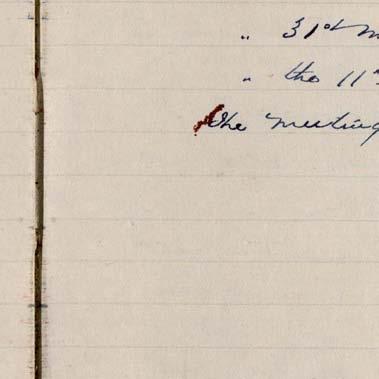 " 31st
" the 11
The meeting